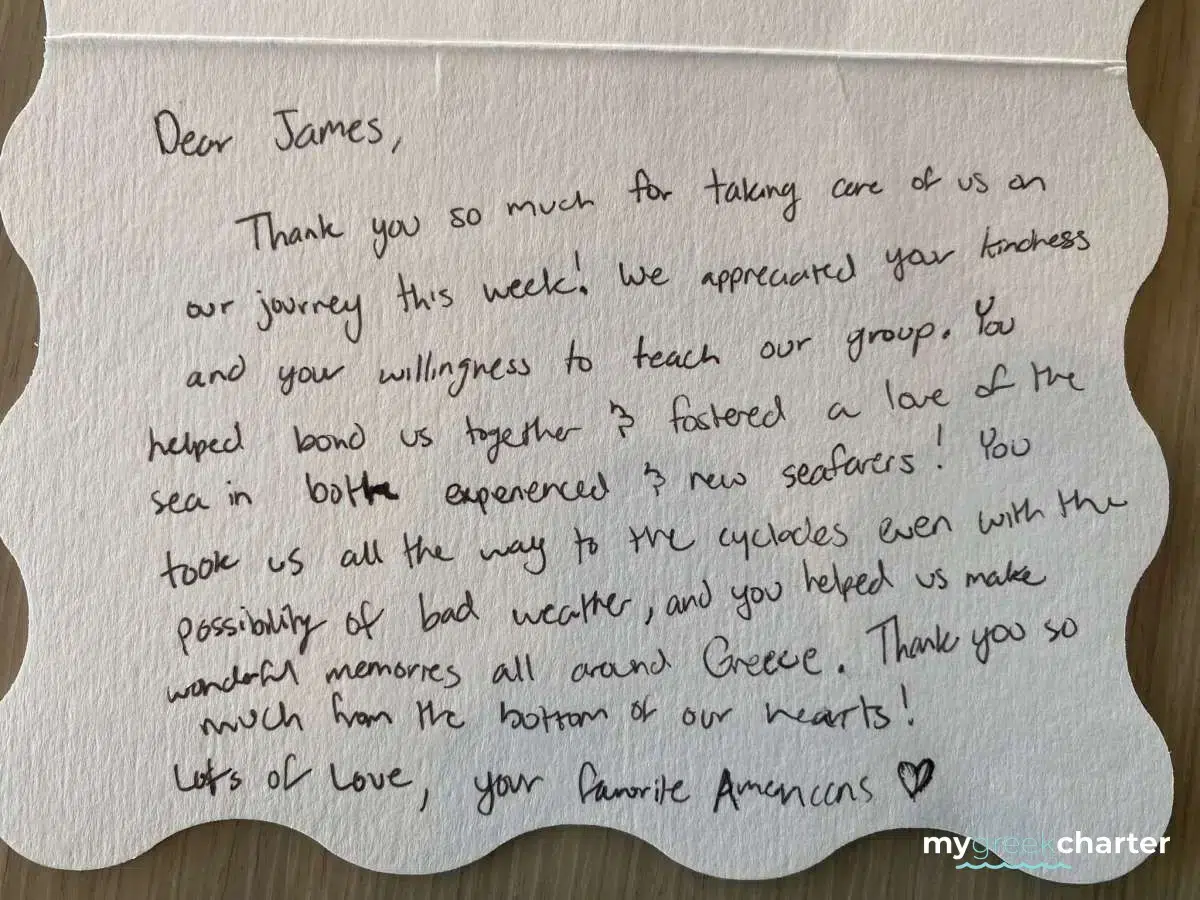 Dear James,
Thank you so much for taking care of us on
our journey this week! We appreciated your kindness
and your willingness to teach our group. You
helped bond us together & fostered a love of the
sea in both experienced & new seafarers! You
took us all the way to the cyclades even with the
possibility of bad weather, and you helped us make
wonderful memories all around Greece. Thank you so
much from the bottom of our hearts!
Lots of Love, your favorite Americans ♡
mygreekcharter